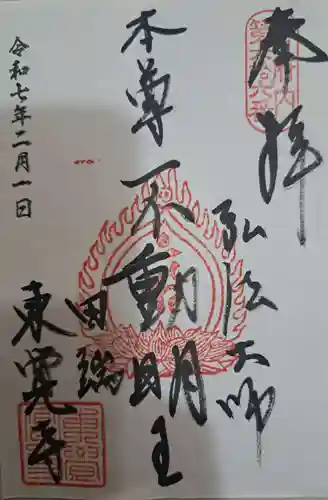 奉拝
弘法大師
本尊不動明王
田端
東覚寺
令和七年二月一日